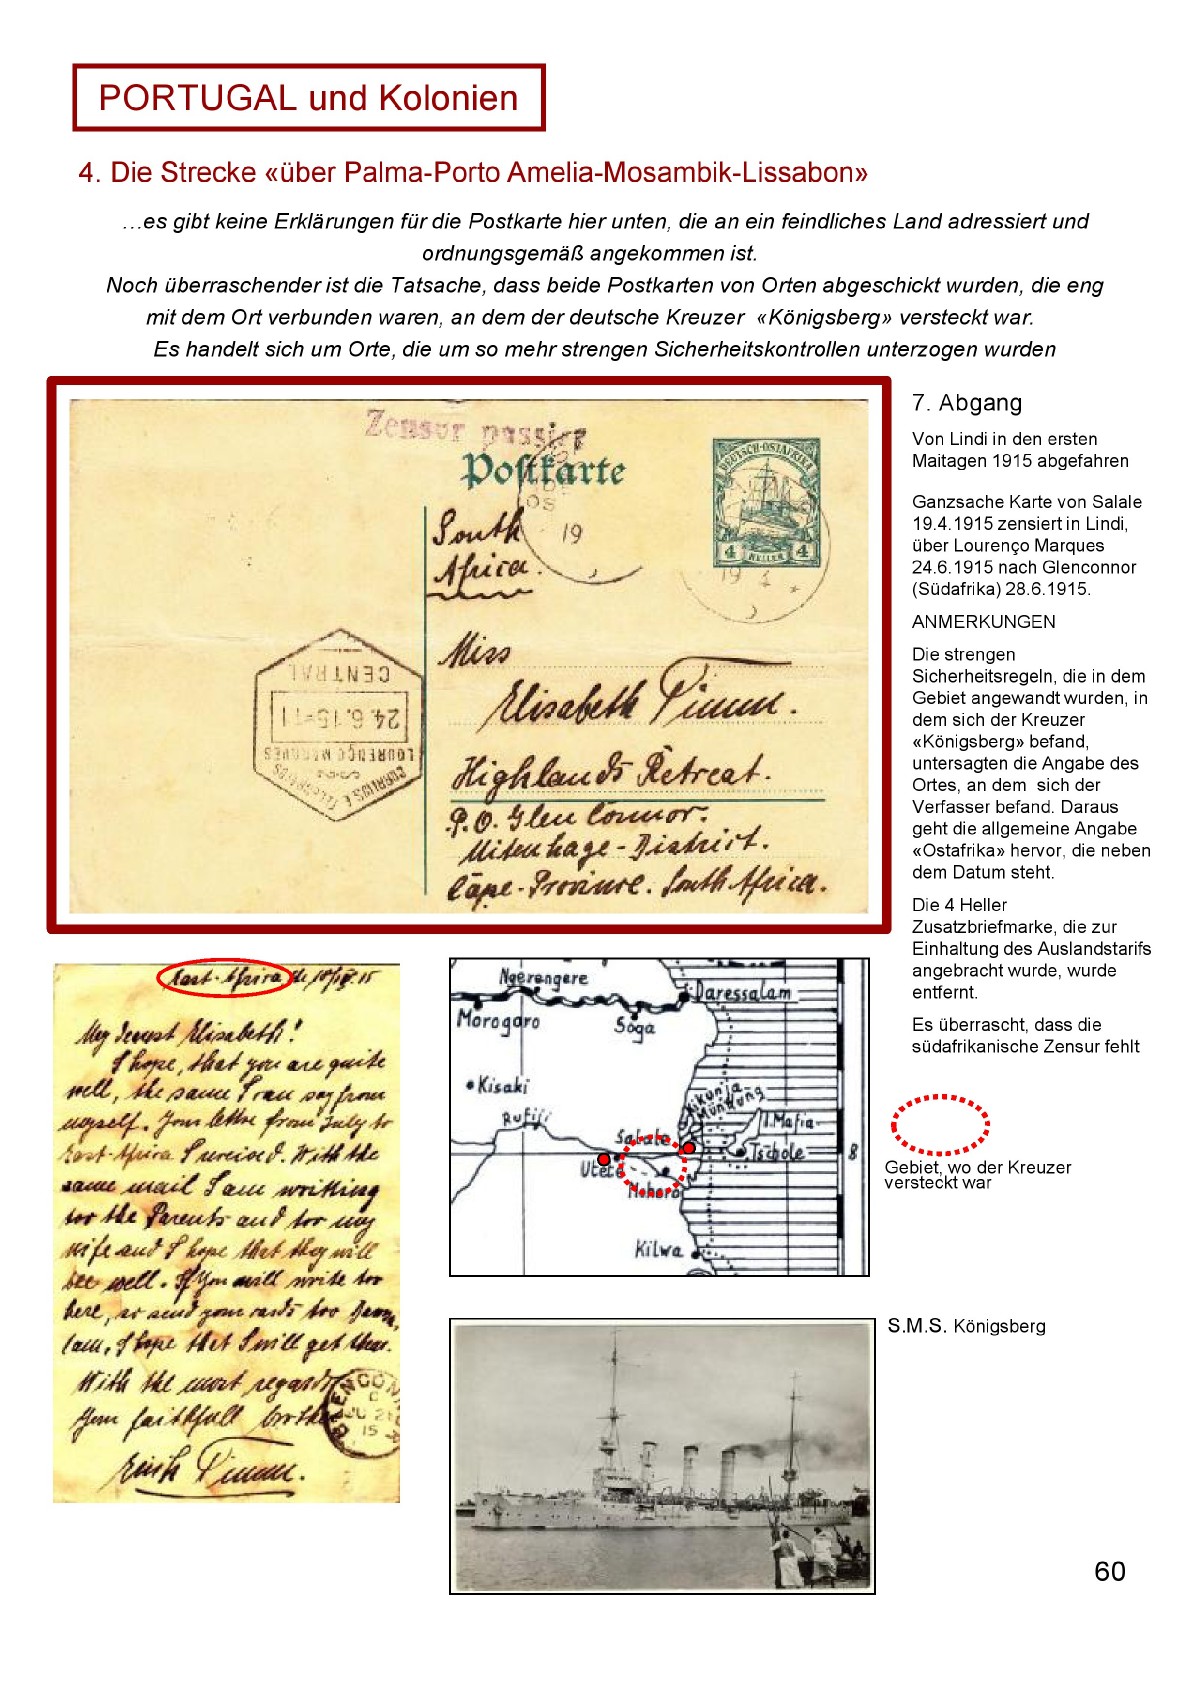 PORTUGAL und Kolonien
4. Die Strecke «über Palma-Porto Amelia-Mosambik-Lissabon»
…es gibt keine Erklärungen für die Postkarte hier unten, die an ein feindliches Land adressiert und
ordnungsgemäß angekommen ist.
Noch überraschender ist die Tatsache, dass beide Postkarten von Orten abgeschickt wurden, die eng
mit dem Ort verbunden waren, an dem der deutsche Kreuzer «Königsberg» versteckt war.
Es handelt sich um Orte, die um so mehr strengen Sicherheitskontrollen unterzogen wurden
Zensur passiert
Postkarte
DEUTSCH-OSTAFRIKA
4 HELLER 4
19
19 4 *
South
Africa.
Miss
Elisabeth Timm.
Highlands Retreat.
P.O. Glen Connor.
Uitenhage-District.
Cape-Province. South Africa.
CENTRAL
24.6.15-11
LOURENÇO MARQUES
CORREIOS E TELEGRAPHOS
7. Abgang
Von Lindi in den ersten
Maitagen 1915 abgefahren
Ganzsache Karte von Salale
19.4.1915 zensiert in Lindi,
über Lourenço Marques
24.6.1915 nach Glenconnor
(Südafrika) 28.6.1915.
ANMERKUNGEN
Die strengen
Sicherheitsregeln, die in dem
Gebiet angewandt wurden, in
dem sich der Kreuzer
«Königsberg» befand,
untersagten die Angabe des
Ortes, an dem sich der
Verfasser befand. Daraus
geht die allgemeine Angabe
«Ostafrika» hervor, die neben
dem Datum steht.
Die 4 Heller
Zusatzbriefmarke, die zur
Einhaltung des Auslandstarifs
angebracht wurde, wurde
entfernt.
Es überrascht, dass die
südafrikanische Zensur fehlt
East-Africa de 18/IV.15
My dearest Elisabeth!
I hope, that you are quite
well, the same I can say from
myself. Your letter from July to
East-Africa I received. With the
same mail I am writting
too the Parents and too my
wife and I hope that they will
bee well. If You will write too
here, so send your cards too
I hope that I will get them.
With the most regards
Your faithfull brother
Erich Timm.
GLENCONNOR
JU 28
15
Ngerengere
Daressalam
Morogoro
Soga
Kisaki
Kikunja
Mündung
Rufiji
I. Mafia
Salale
Tschole
8
Utete
Mohoro
Kilwa
Gebiet, wo der Kreuzer
versteckt war
S.M.S. Königsberg
60